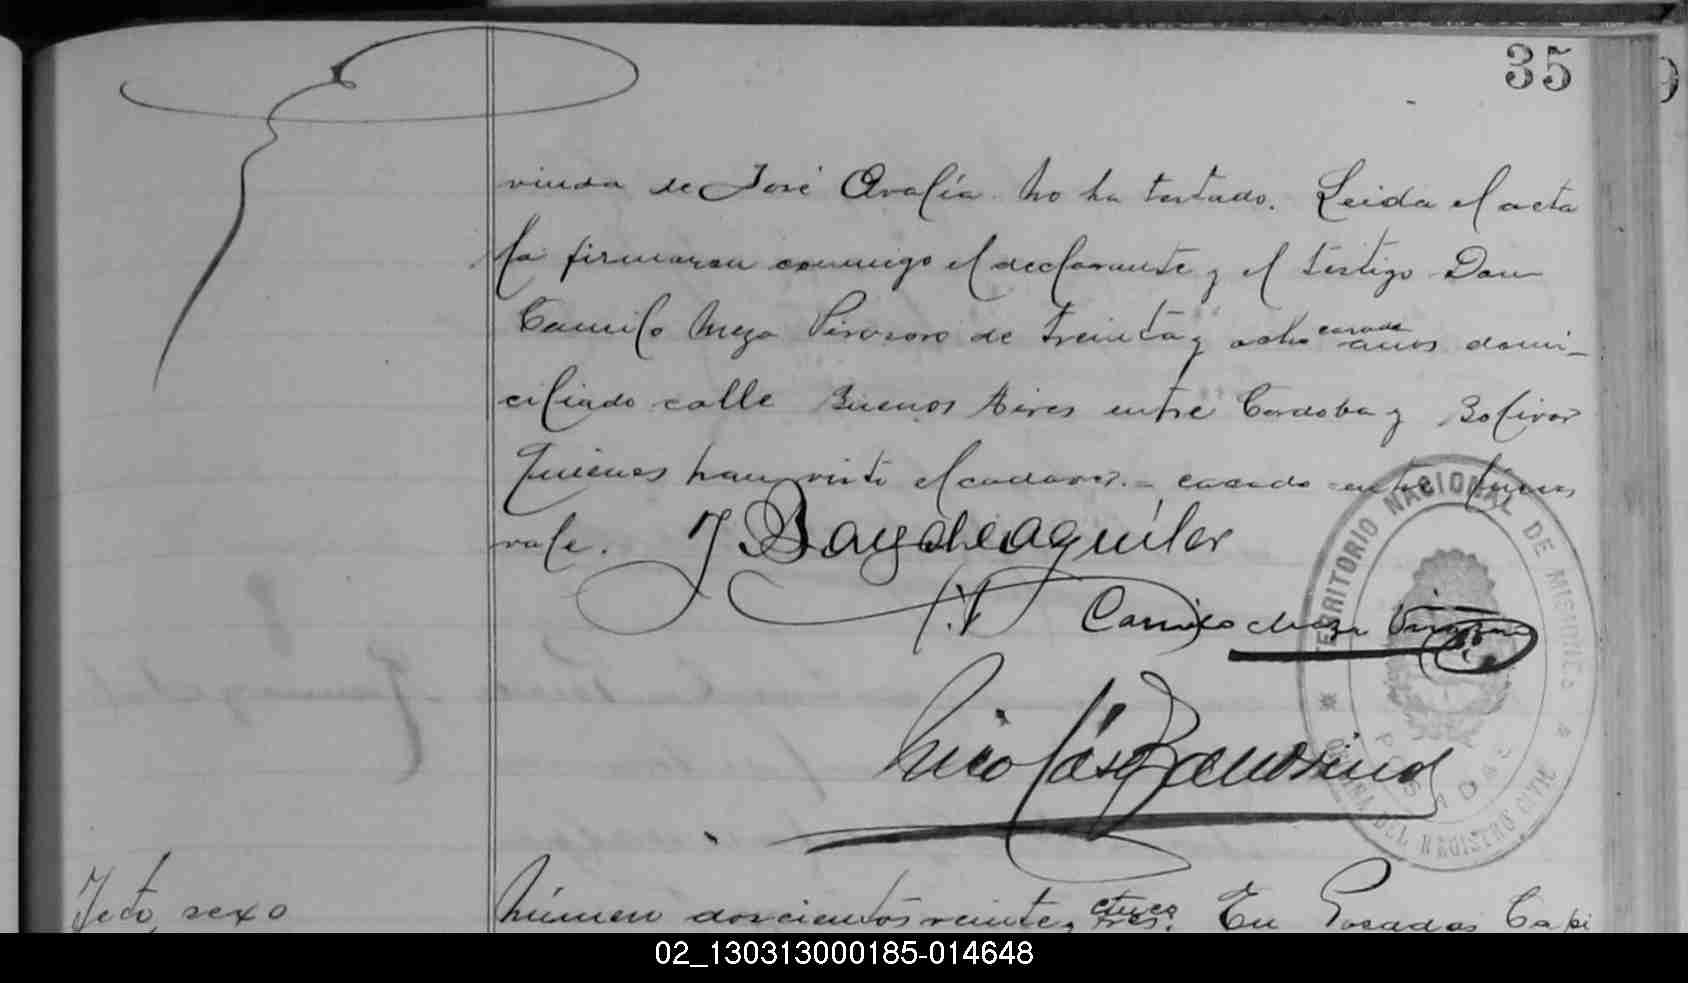 35
viuda de José Ovalía. No ha testado. Leida el acta
la firmaron conmigo el declarante y el testigo Don
Camilo Meza Pirozoro de treinta y ocho casado años domi-
ciliado calle Buenos Aires entre Cordoba y Bolivar
quienes han visto el cadaver. - casado entre líneas
vale. J Baydeaguiler
Camilo Meza
Nicolás
TERRITORIO NACIONAL DE MISIONES
POSADAS
OFICINA DEL REGISTRO CIVIL
Feto, sexo
Número doscientos veinte y cinco tres. En Posadas Capi
02_130313000185-014648